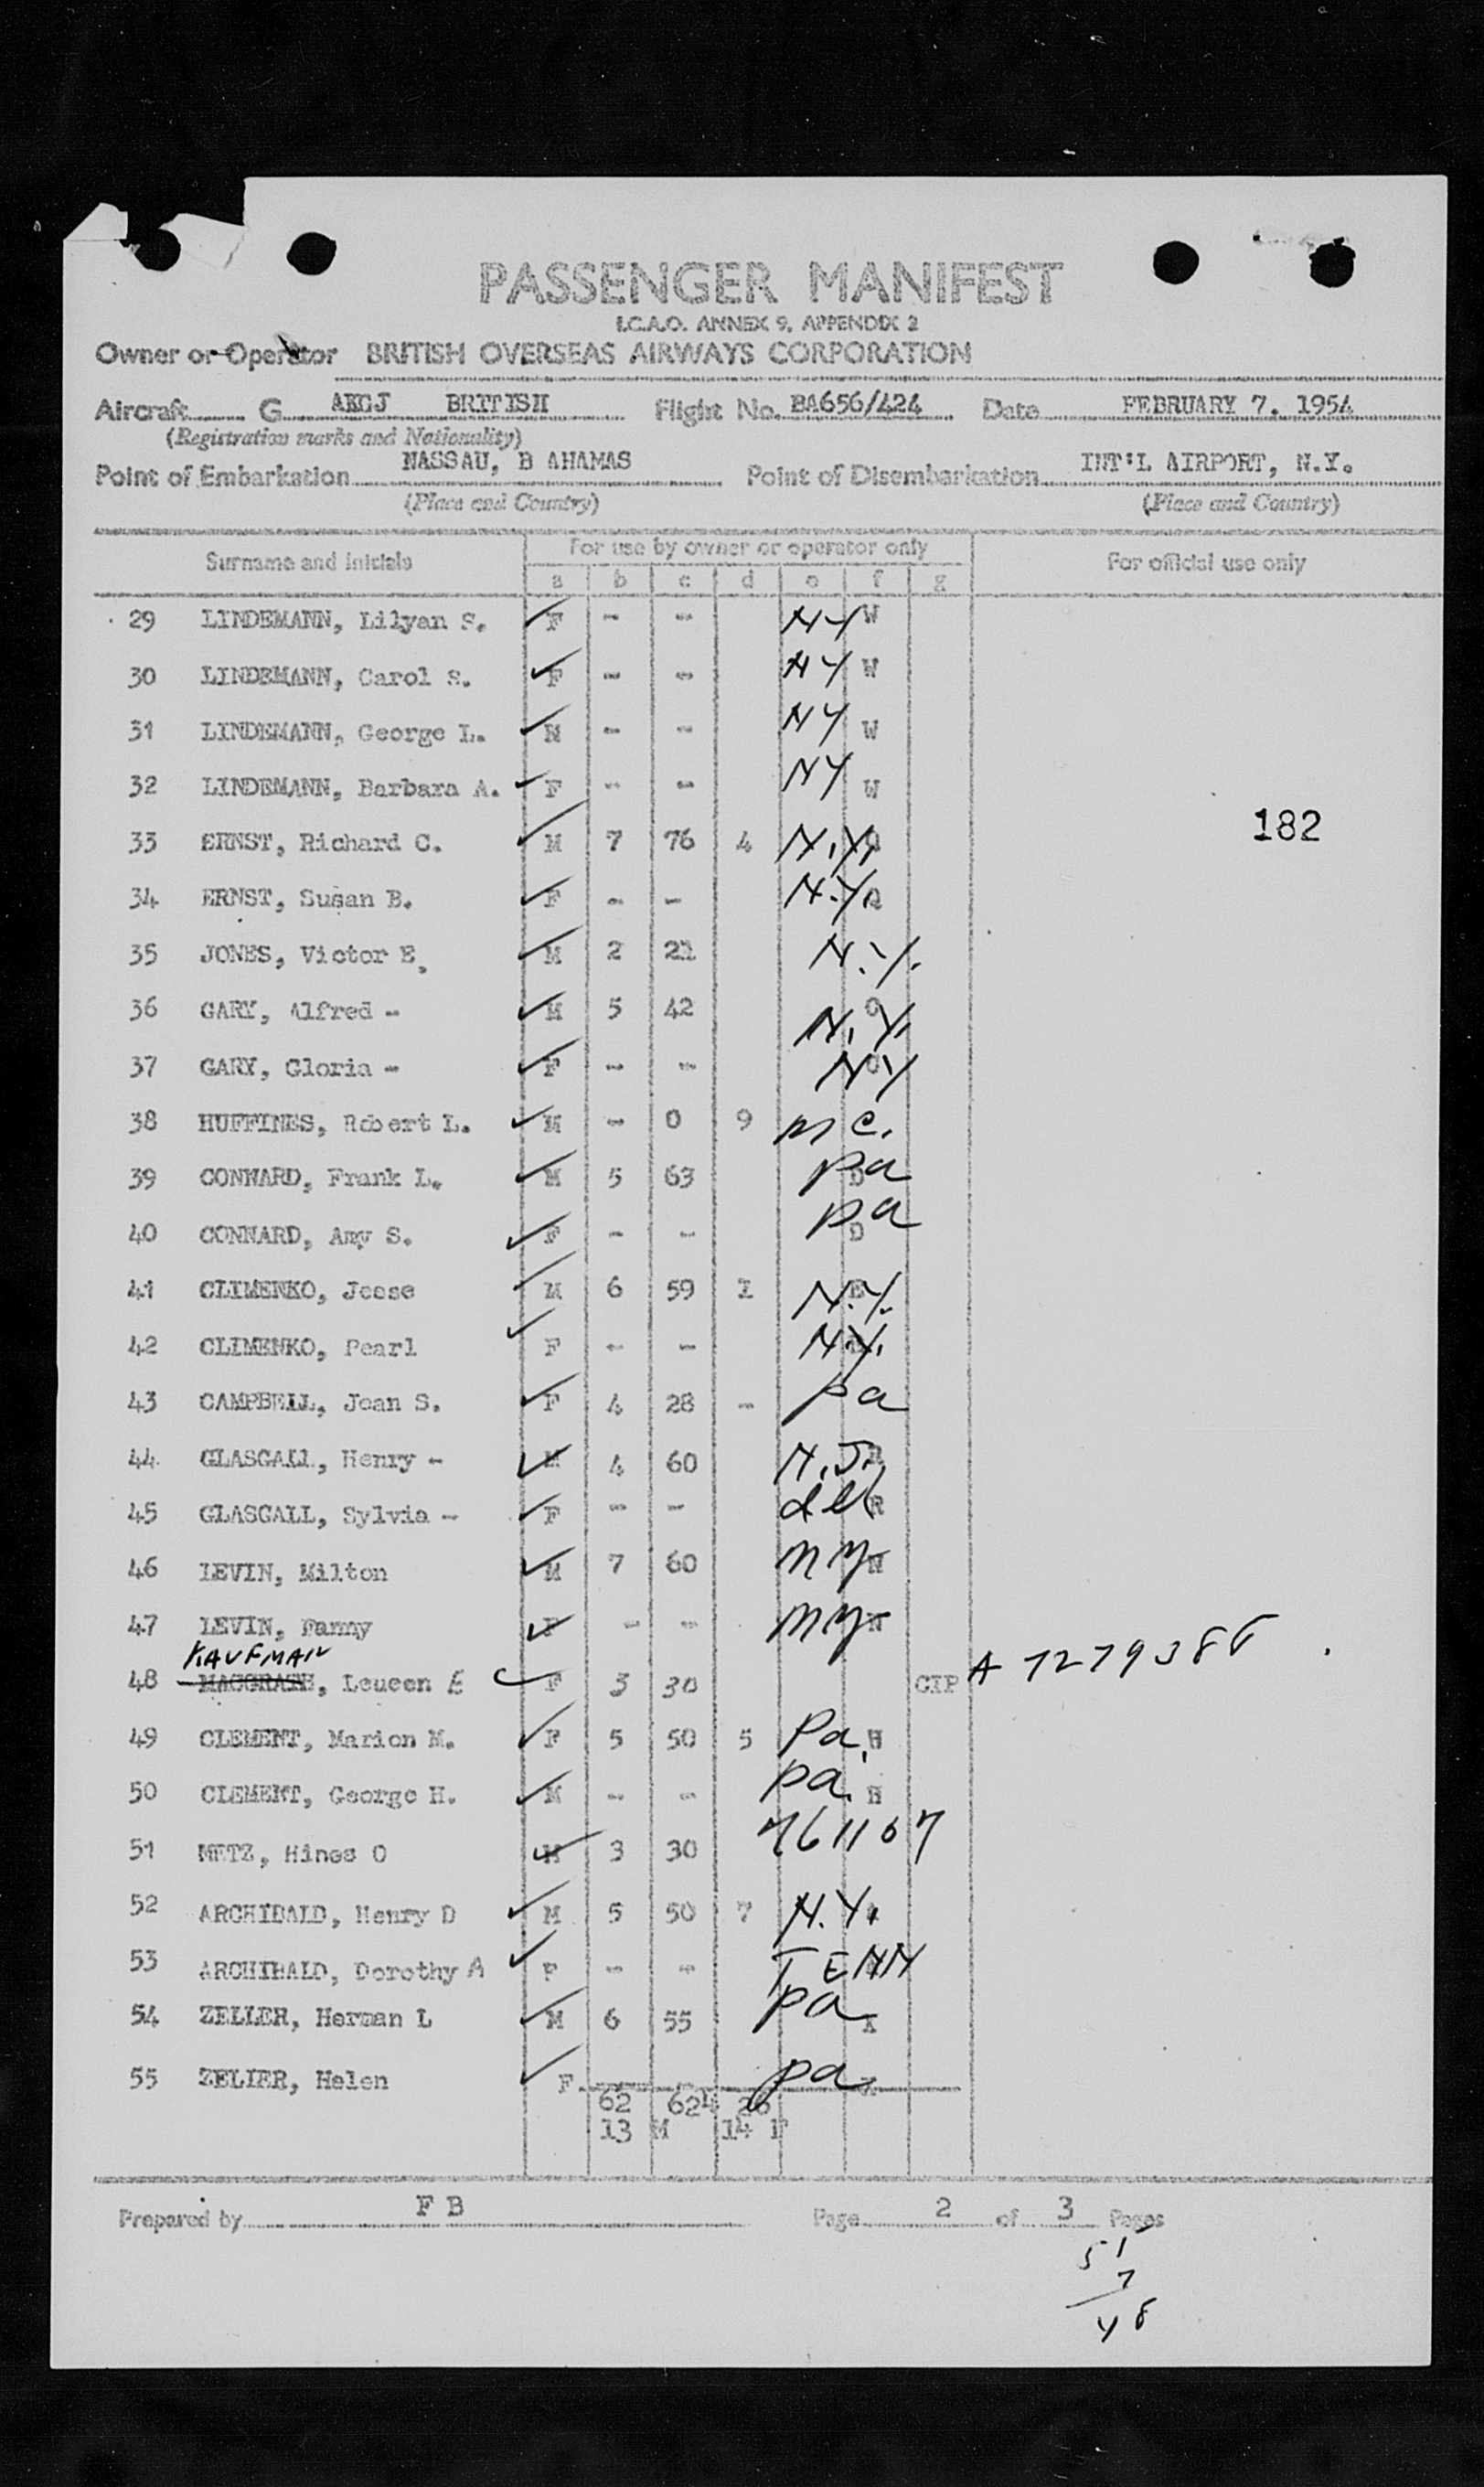 PASSENGER MANIFEST
I.C.A.O. ANNEX 9, APPENDIX 2
Owner or Operator BRITISH OVERSEAS AIRWAYS CORPORATION
Aircraft G AKGJ BRITISH Flight No. BA656/424 Date FEBRUARY 7. 1954
(Registration marks and Nationality)
Point of Embarkation NASSAU, B AHAMAS Point of Disembarkation INT'L AIRPORT, N.Y.
(Place and Country) (Place and Country)
Surname and initials For use by owner or operator only For official use only
a b c d e f g
29 LINDEMANN, Lilyan S. F - - NY W
30 LINDEMANN, Carol S. F - - NY W
31 LINDEMANN, George L. M - - NY W
32 LINDEMANN, Barbara A. F - - NY W
182
33 ERNST, Richard C. M 7 76 4 N.Y.
34 ERNST, Susan B. F - - N.Y.
35 JONES, Victor E. M 2 21 N.Y.
36 GARY, Alfred - M 5 42 N.Y. O
37 GARY, Gloria - F - - NY O
38 HUFFINES, Robert L. M - 0 9
39 CONNARD, Frank L. M 5 63 pa D
40 CONNARD, Amy S. F - - pa D
41 CLIMENKO, Jesse M 6 59 1 N.Y. E
42 CLIMENKO, Pearl F - - N.Y.
43 CAMPBELL, Jean S. F 4 28 - pa
44 GLASGALL, Henry - M 4 60 N.J. R
45 GLASGALL, Sylvia - F - - del R
46 LEVIN, Milton M 7 60 ny N
47 LEVIN, Fanny F - - ny N
KAUFMAN
48 MACGRATH, Leueen E F 3 30 CIP A 7279386
49 CLEMENT, Marion M. F 5 50 5 Pa. H
50 CLEMENT, George H. M - - pa. H
51 METZ, Hines O M 3 30 761107
52 ARCHIBALD, Henry D M 5 50 7 N.Y.
53 ARCHIBALD, Dorothy A F - - TENN
54 ZELLER, Herman L M 6 55 pa X
55 ZELLER, Helen F - pa
62 624 26
13 M 14 F
Prepared by F B Page 2 of 3 Pages
51
7
48